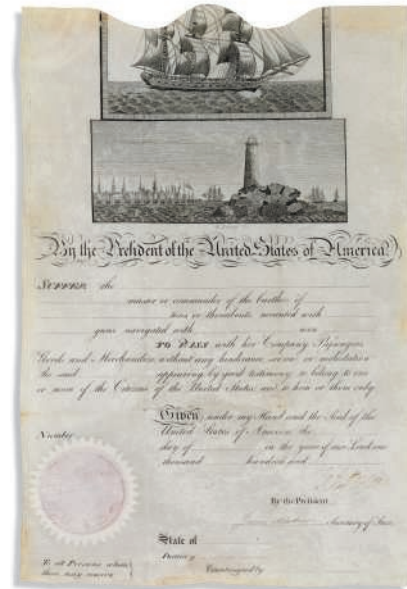 By the President of the United States of America
SUFFER the
master or commander of the burthen of
tons or thereabouts mounted with
guns navigated with men
TO PASS with her Company Passengers
Goods and Merchandize without any hinderance seisure or molestation
the said appearing by good testimony to belong to one
or more of the Citizens of the United States and to him or them only
Given under my Hand and the Seal of the
United States of America the
Number
day of in the year of our Lord one
thousand hundred and
By the President
James Madison Secretary of State
State of
District
To all Persons whom
these may concern
Countersigned by